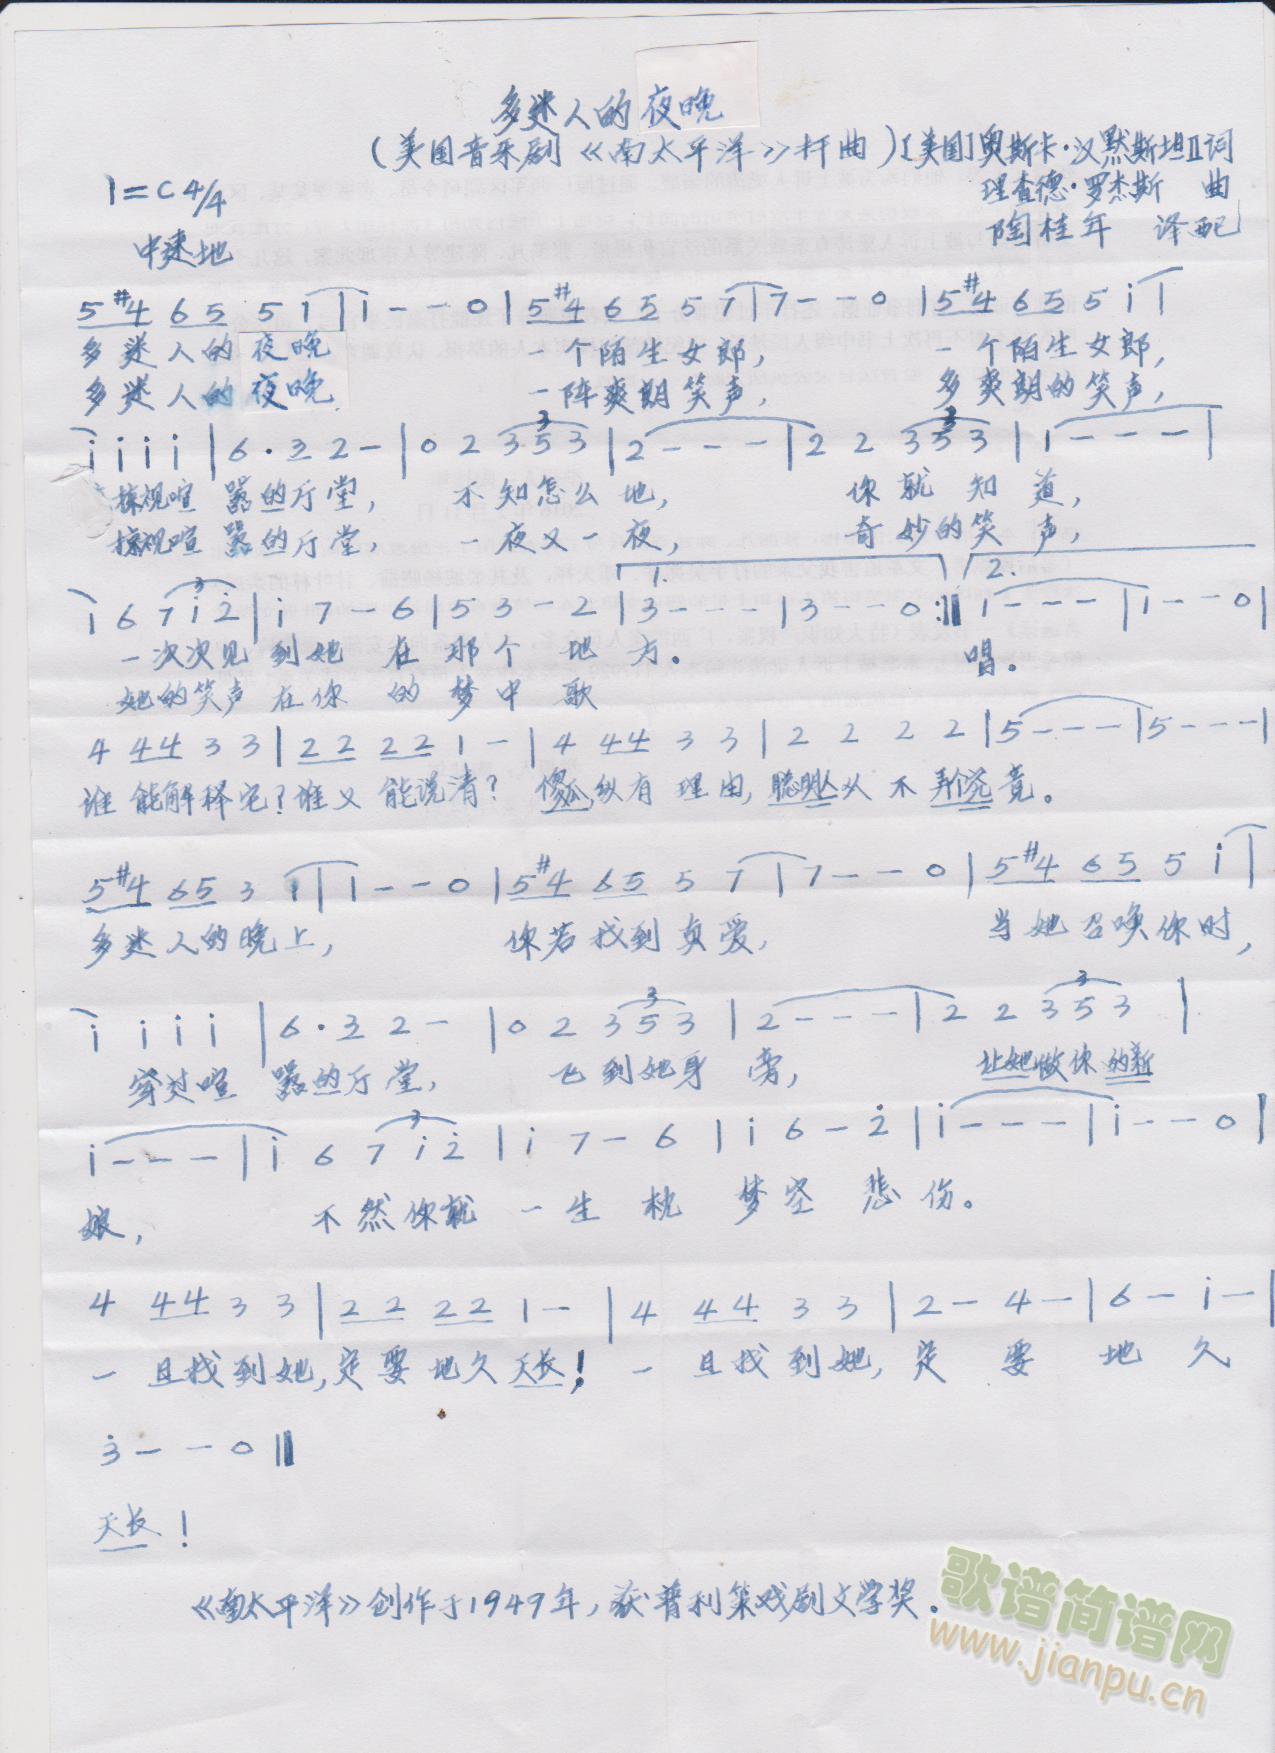 多迷人的夜晚
(美国音乐剧《南太平洋》插曲)[美国]奥斯卡·汉默斯坦II词
1=C 4/4
理查德·罗杰斯 曲
中速地
陶桂年 译配
5 #4 6 5 5 1 | 1 - - 0 | 5 #4 6 5 5 7 | 7 - - 0 | 5 #4 6 5 5 i |
多迷人的夜晚 一个陌生女郎, 一个陌生女郎,
多迷人的夜晚 一阵爽朗笑声, 多爽朗的笑声,
i i i i | 6 · 3 2 - | 0 2 3 5 3 | 2 - - - | 2 2 3 5 3 | 1 - - - |
掠视喧嚣的厅堂, 不知怎么地, 你就知道,
掠视喧嚣的厅堂, 一夜又一夜, 奇妙的笑声,
1. 2.
i 6 7 i 2 | i 7 - 6 | 5 3 - 2 | 3 - - - | 3 - - 0 :|| 1 - - - | 1 - - 0 |
一次次见到她在那个地方。 唱。
她的笑声在你的梦中歌
4 4 4 3 3 | 2 2 2 2 1 - | 4 4 4 3 3 | 2 2 2 2 | 5 - - - | 5 - - - |
谁能解释它?谁又能说清?傻瓜纵有理由,聪明人从不弄个究竟。
5 #4 6 5 3 1 | 1 - - 0 | 5 #4 6 5 5 7 | 7 - - 0 | 5 #4 6 5 5 i |
多迷人的晚上, 你若找到真爱, 当她召唤你时,
i i i i | 6 · 3 2 - | 0 2 3 5 3 | 2 - - - | 2 2 3 5 3 |
穿过喧嚣的厅堂, 飞到她身旁, 让她做你的新
i - - - | i 6 7 i 2 | i 7 - 6 | i 6 - 2 | i - - - | i - - 0 |
娘, 不然你就一生枕梦空悲伤。
4 4 4 3 3 | 2 2 2 2 1 - | 4 4 4 3 3 | 2 - 4 - | 6 - i - |
一旦找到她,定要地久天长!一旦找到她,定要地久
3 - - 0 ||
天长!
《南太平洋》创作于1949年,获普利策戏剧文学奖.
歌谱简谱网
www.jianpu.cn